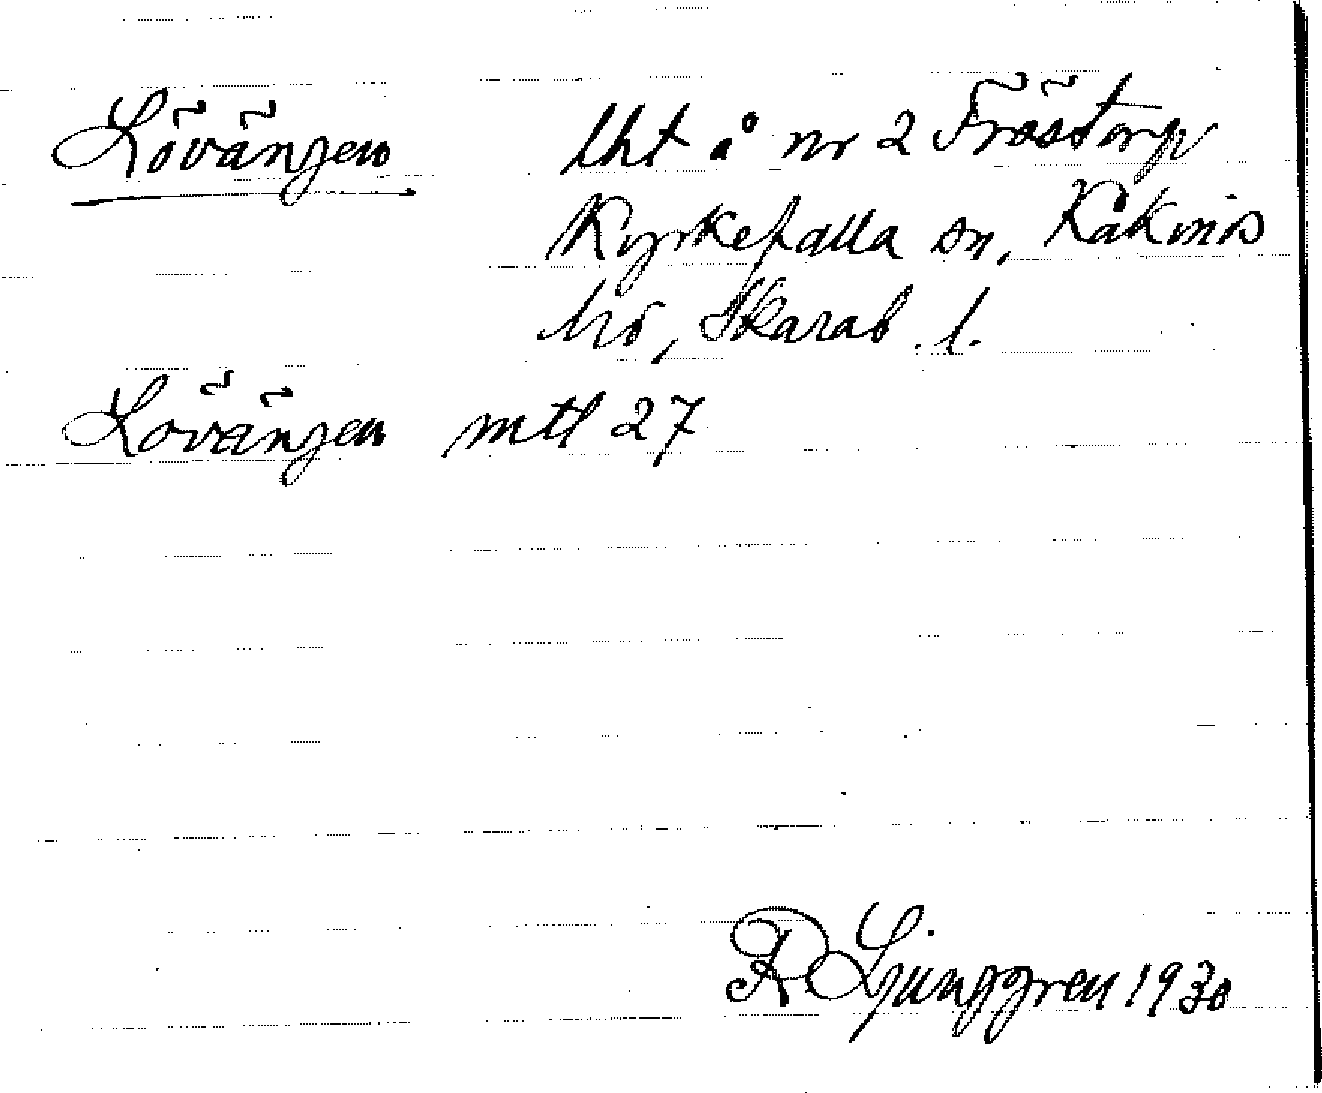 Lövängen lht å nr 2 Fröstorp
Kyrkefalla sn, Kåkinds
hd, Skarab. l.
Lövängen mtl 27
R Ljunggren 1930